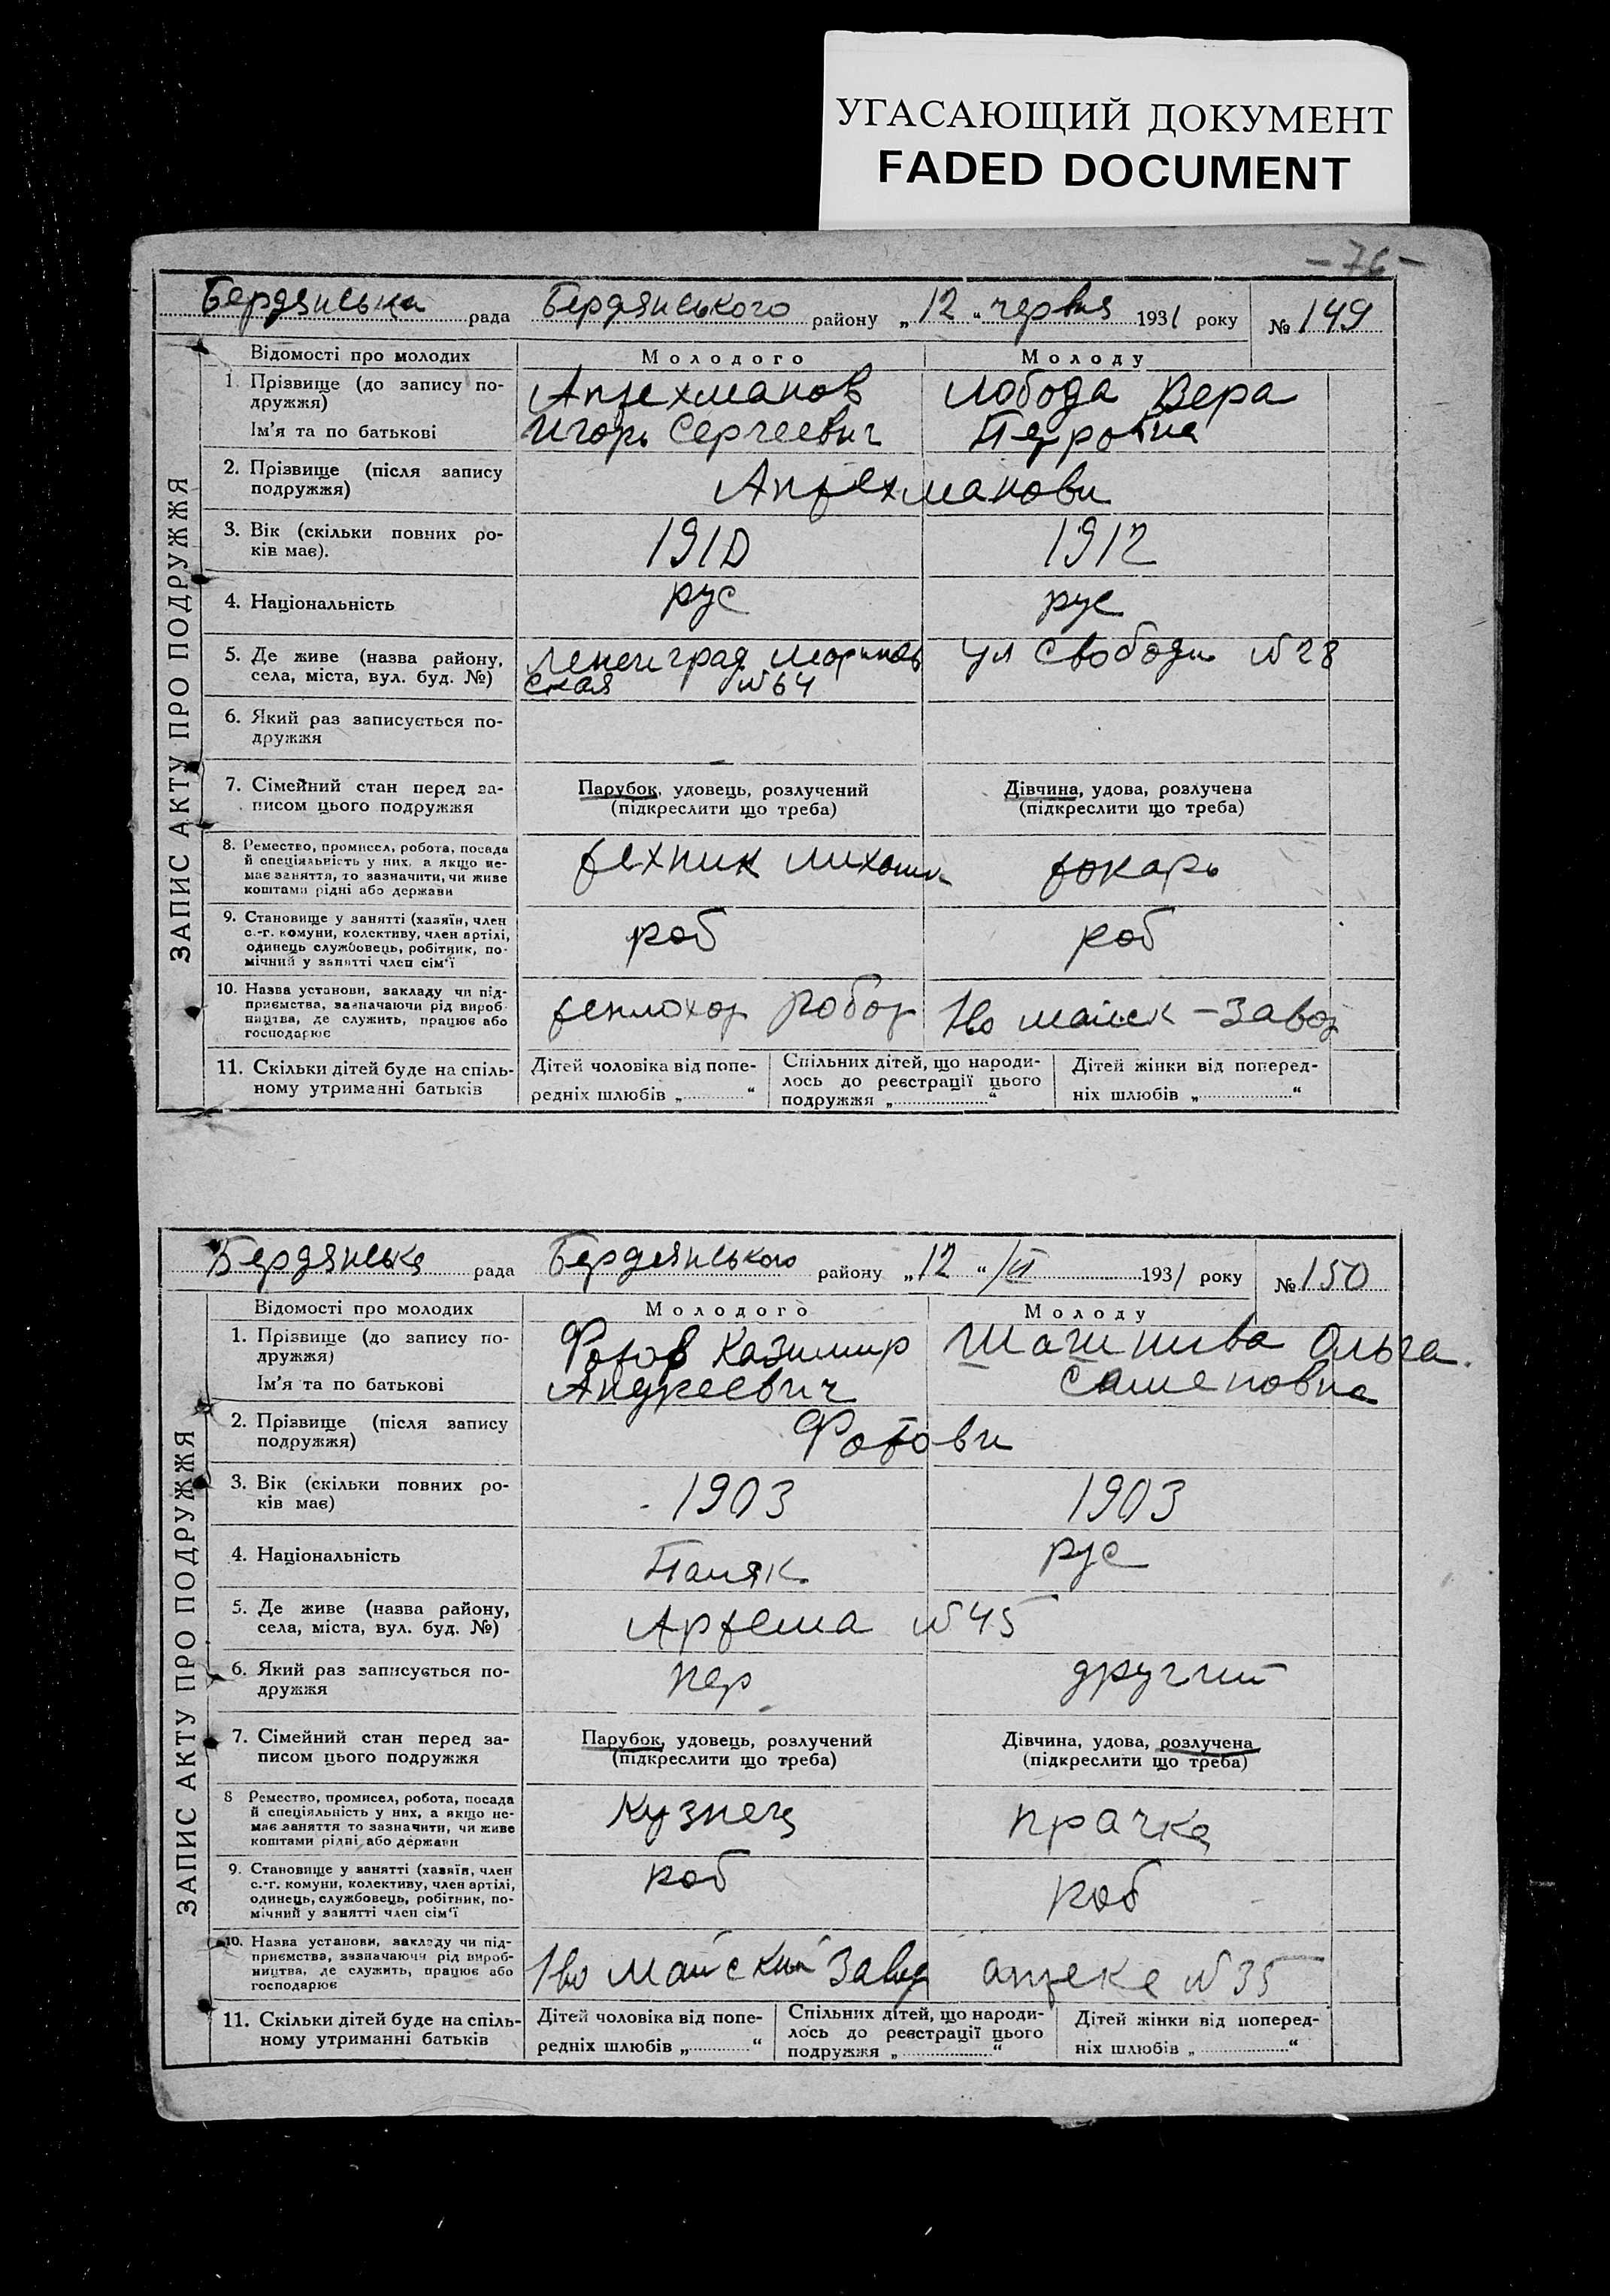 УГАСАЮЩИЙ ДОКУМЕНТ
FADED DOCUMENT
– 76 –
Бердянська рада Бердянського району „12“ червня 1931 року № 149
ЗАПИС АКТУ ПРО ПОДРУЖЖЯ
Відомості про молодих Молодого Молоду
1. Прізвище (до запису по-
дружжя)
Ім'я та по батькові
Аптехманов
Игорь Сергеевич
Лобода Вера
Петровна
2. Прізвище (після запису
подружжя)
Аптехманови
3. Вік (скільки повних ро-
ків має).
1910 1912
4. Національність
рус рус
5. Де живе (назва району,
села, міста, вул. буд. №)
Ленинград
ская №64
ул Свободи №28
6. Який раз записується по-
дружжя
7. Сімейний стан перед за-
писом цього подружжя
Парубок, удовець, розлучений
(підкреслити що треба)
Дівчина, удова, розлучена
(підкреслити що треба)
8. Ремество, промисел, робота, посада
й спеціяльність у них, а якщо не-
має заняття, то зазначити, чи живе
коштами рідні або держави
техник токарь
9. Становище у занятті (хазяїн, член
с.-г. комуни, колективу, член артілі,
одинець службовець, робітник, по-
мічний у занятті член сім'ї
роб роб
10. Назва установи, закладу чи під-
приємства, зазначаючи рід вироб-
ництва, де служить, працює або
господарює
теплоход 1во майск – завод
11. Скільки дітей буде на спіль-
ному утриманні батьків
Дітей чоловіка від попе-
редніх шлюбів „ “
Спільних дітей, що народи-
лось до реєстрації цього
подружжя „ “
Дітей жінки від поперед-
ніх шлюбів „ “
Бердянська рада Бердянського району „12“ /VI 1931 року № 150
ЗАПИС АКТУ ПРО ПОДРУЖЖЯ
Відомості про молодих Молодого Молоду
1. Прізвище (до запису по-
дружжя)
Ім'я та по батькові
Фотов Казимир
Андреевич
Ольга
Семеновна
2. Прізвище (після запису
подружжя)
Фотови
3. Вік (скільки повних ро-
ків має)
1903 1903
4. Національність
Паляк рус
5. Де живе (назва району,
села, міста, вул. буд. №)
Артема №45
6. Який раз записується по-
дружжя
пер другий
7. Сімейний стан перед за-
писом цього подружжя
Парубок, удовець, розлучений
(підкреслити що треба)
Дівчина, удова, розлучена
(підкреслити що треба)
8 Ремество, промисел, робота, посада
й спеціяльність у них, а якщо не-
має заняття то зазначити, чи живе
коштами рідні або держави
кузнец прачка
9. Становище у занятті (хазяїн, член
с.-г. комуни, колективу, член артілі,
одинець, службовець, робітник, по-
мічний у занятті член сім'ї
роб роб
10. Назва установи, закладу чи під-
приємства, зазначаючи рід вироб-
ництва, де служить, працює або
господарює
1во майский завод аптека №35
11. Скільки дітей буде на спіль-
ному утриманні батьків
Дітей чоловіка від попе-
редніх шлюбів „ “
Спільних дітей, що народи-
лось до реєстрації цього
подружжя „ “
Дітей жінки від поперед-
ніх шлюбів „ “